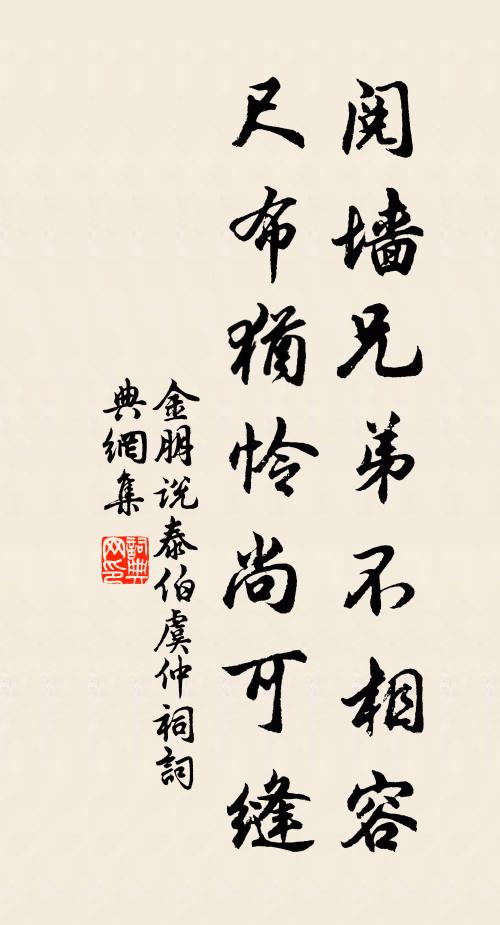 阅墙兄弟不相容
尺布猶怜尚可縫
金朋说泰伯虞仲祠詞
典網集
詞典
网印